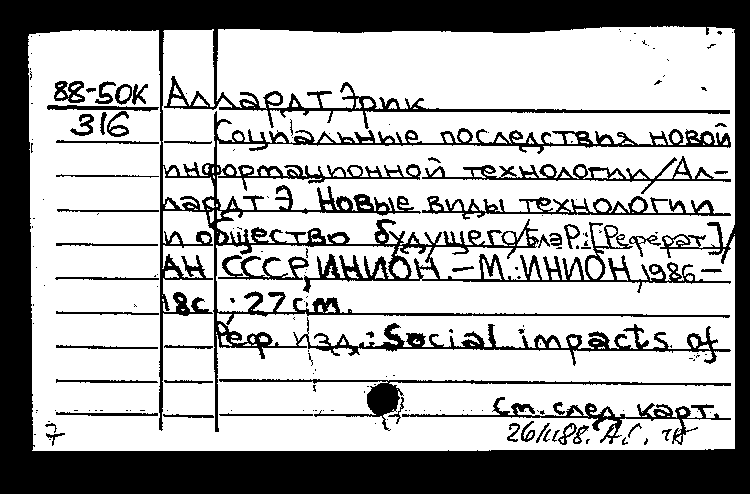 88-50К Аллардт, Эрик.
316 Социальные последствия новой
информационной технологии/Ал-
лардт Э. Новые виды технологии
и общество будущего/Бла Р.:[Реферат]/
АН СССР, ИНИОН. – М.: ИНИОН, 1986. –
18с.; 27 см.
Реф. изд.: Social impacts of
См. след. карт.
7